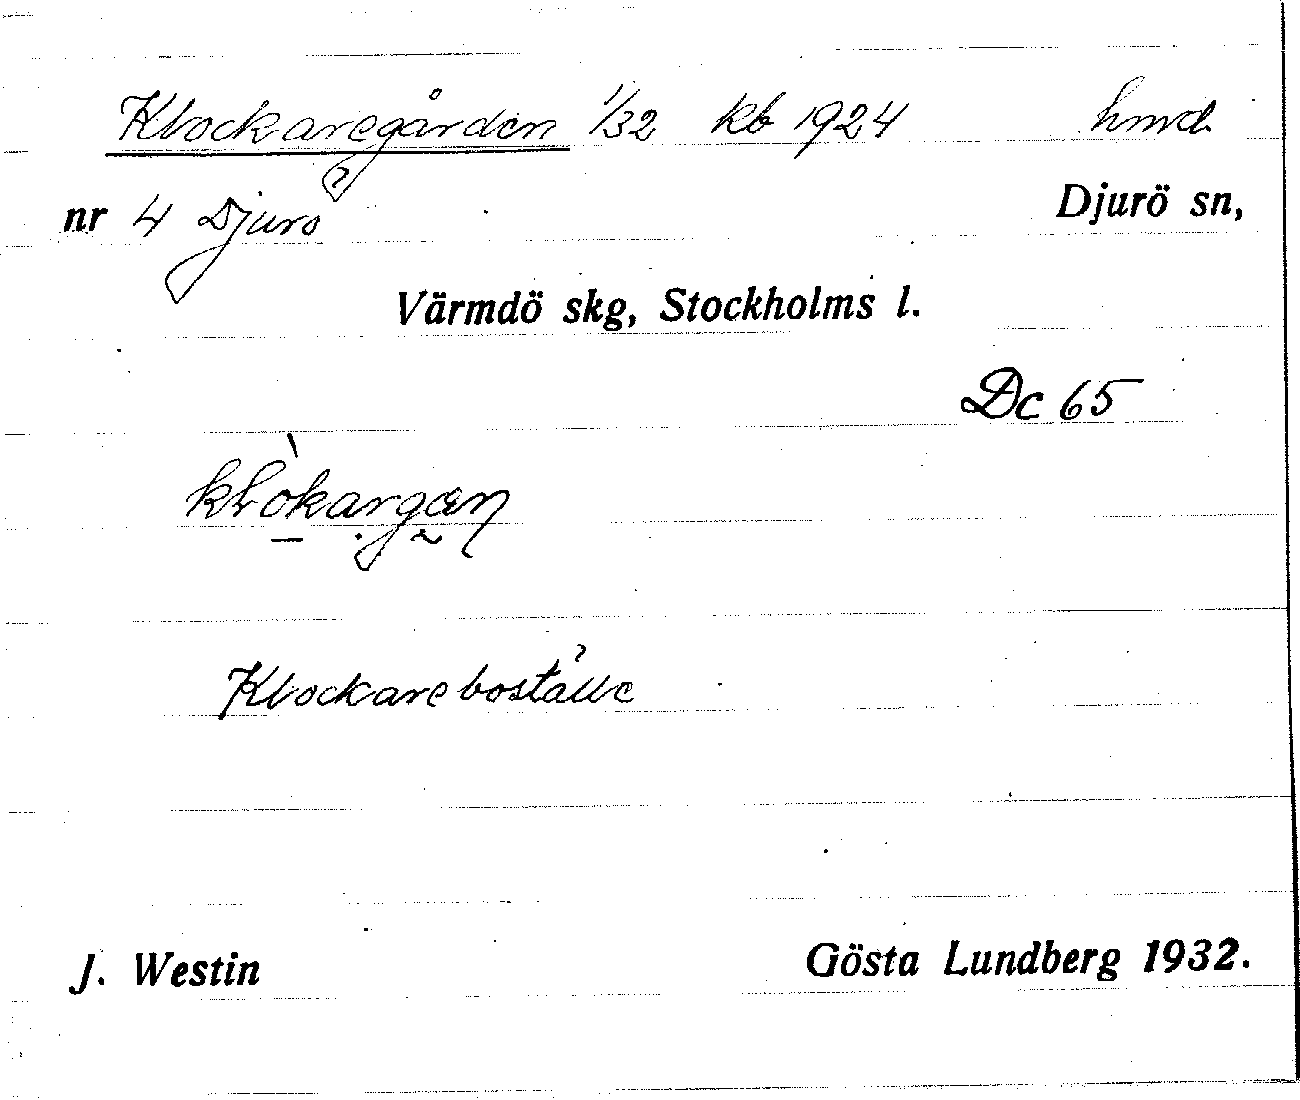 Klockaregården 1/32 kb 1924 hmd.
nr 4 Djurö Djurö sn,
Värmdö skg, Stockholms l.
Dc 65
klòkargan
Klockareboställe
J. Westin Gösta Lundberg 1932.